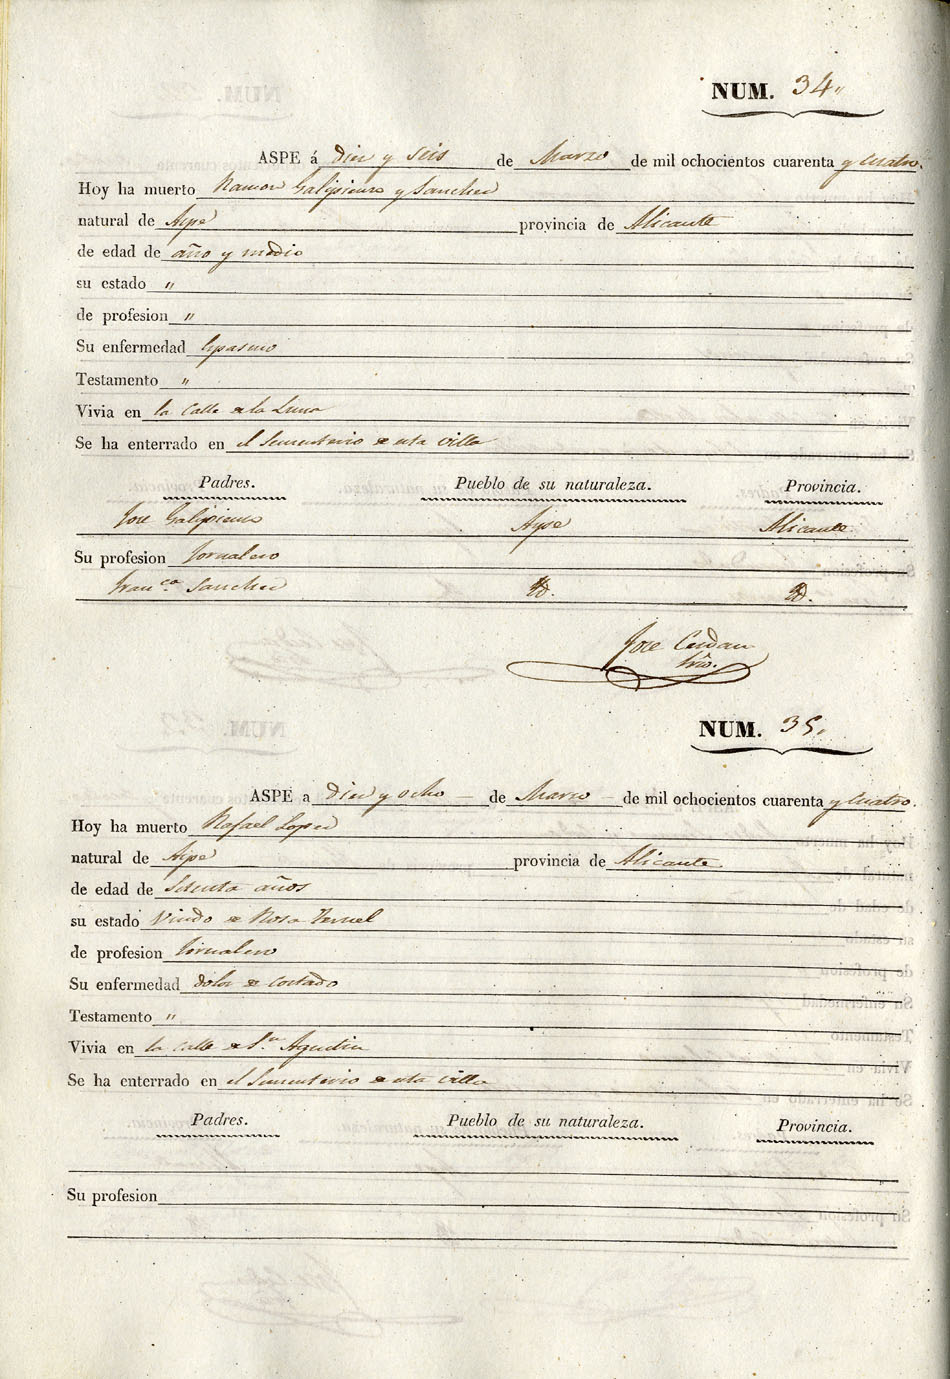 NUM. 34
ASPE á diez y seis de Marzo de mil ochocientos cuarenta y cuatro.
Hoy ha muerto Ramon Galipienso y Sanchez
natural de Aspe provincia de Alicante
de edad de año y medio
su estado "
de profesion "
Su enfermedad Espasmo
Testamento "
Vivia en la Calle de la Luna
Se ha enterrado en el Sementerio de esta Villa
Padres. Pueblo de su naturaleza. Provincia.
Jose Galipienso Aspe Alicante
Su profesion Jornalero
Fran.ca Sanchez Yd. Yd.
Jose Cerdan
Srio.
NUM. 35.
ASPE a diez y ocho de Marzo de mil ochocientos cuarenta y cuatro.
Hoy ha muerto Rafael Lopez
natural de Aspe provincia de Alicante
de edad de setenta años
su estado Viudo de Rosa
de profesion Jornalero
Su enfermedad dolor de costado
Testamento "
Vivia en la Calle de Sn. Agustin
Se ha enterrado en el Sementerio de esta Villa
Padres. Pueblo de su naturaleza. Provincia.
Su profesion